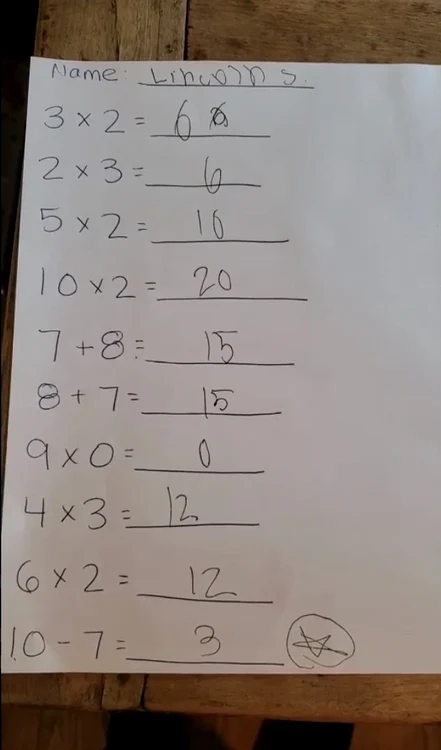 Name: Lincoln S.
3 × 2 = 6
2 × 3 = 6
5 × 2 = 10
10 × 2 = 20
7 + 8 = 15
8 + 7 = 15
9 × 0 = 0
4 × 3 = 12
6 × 2 = 12
10 - 7 = 3